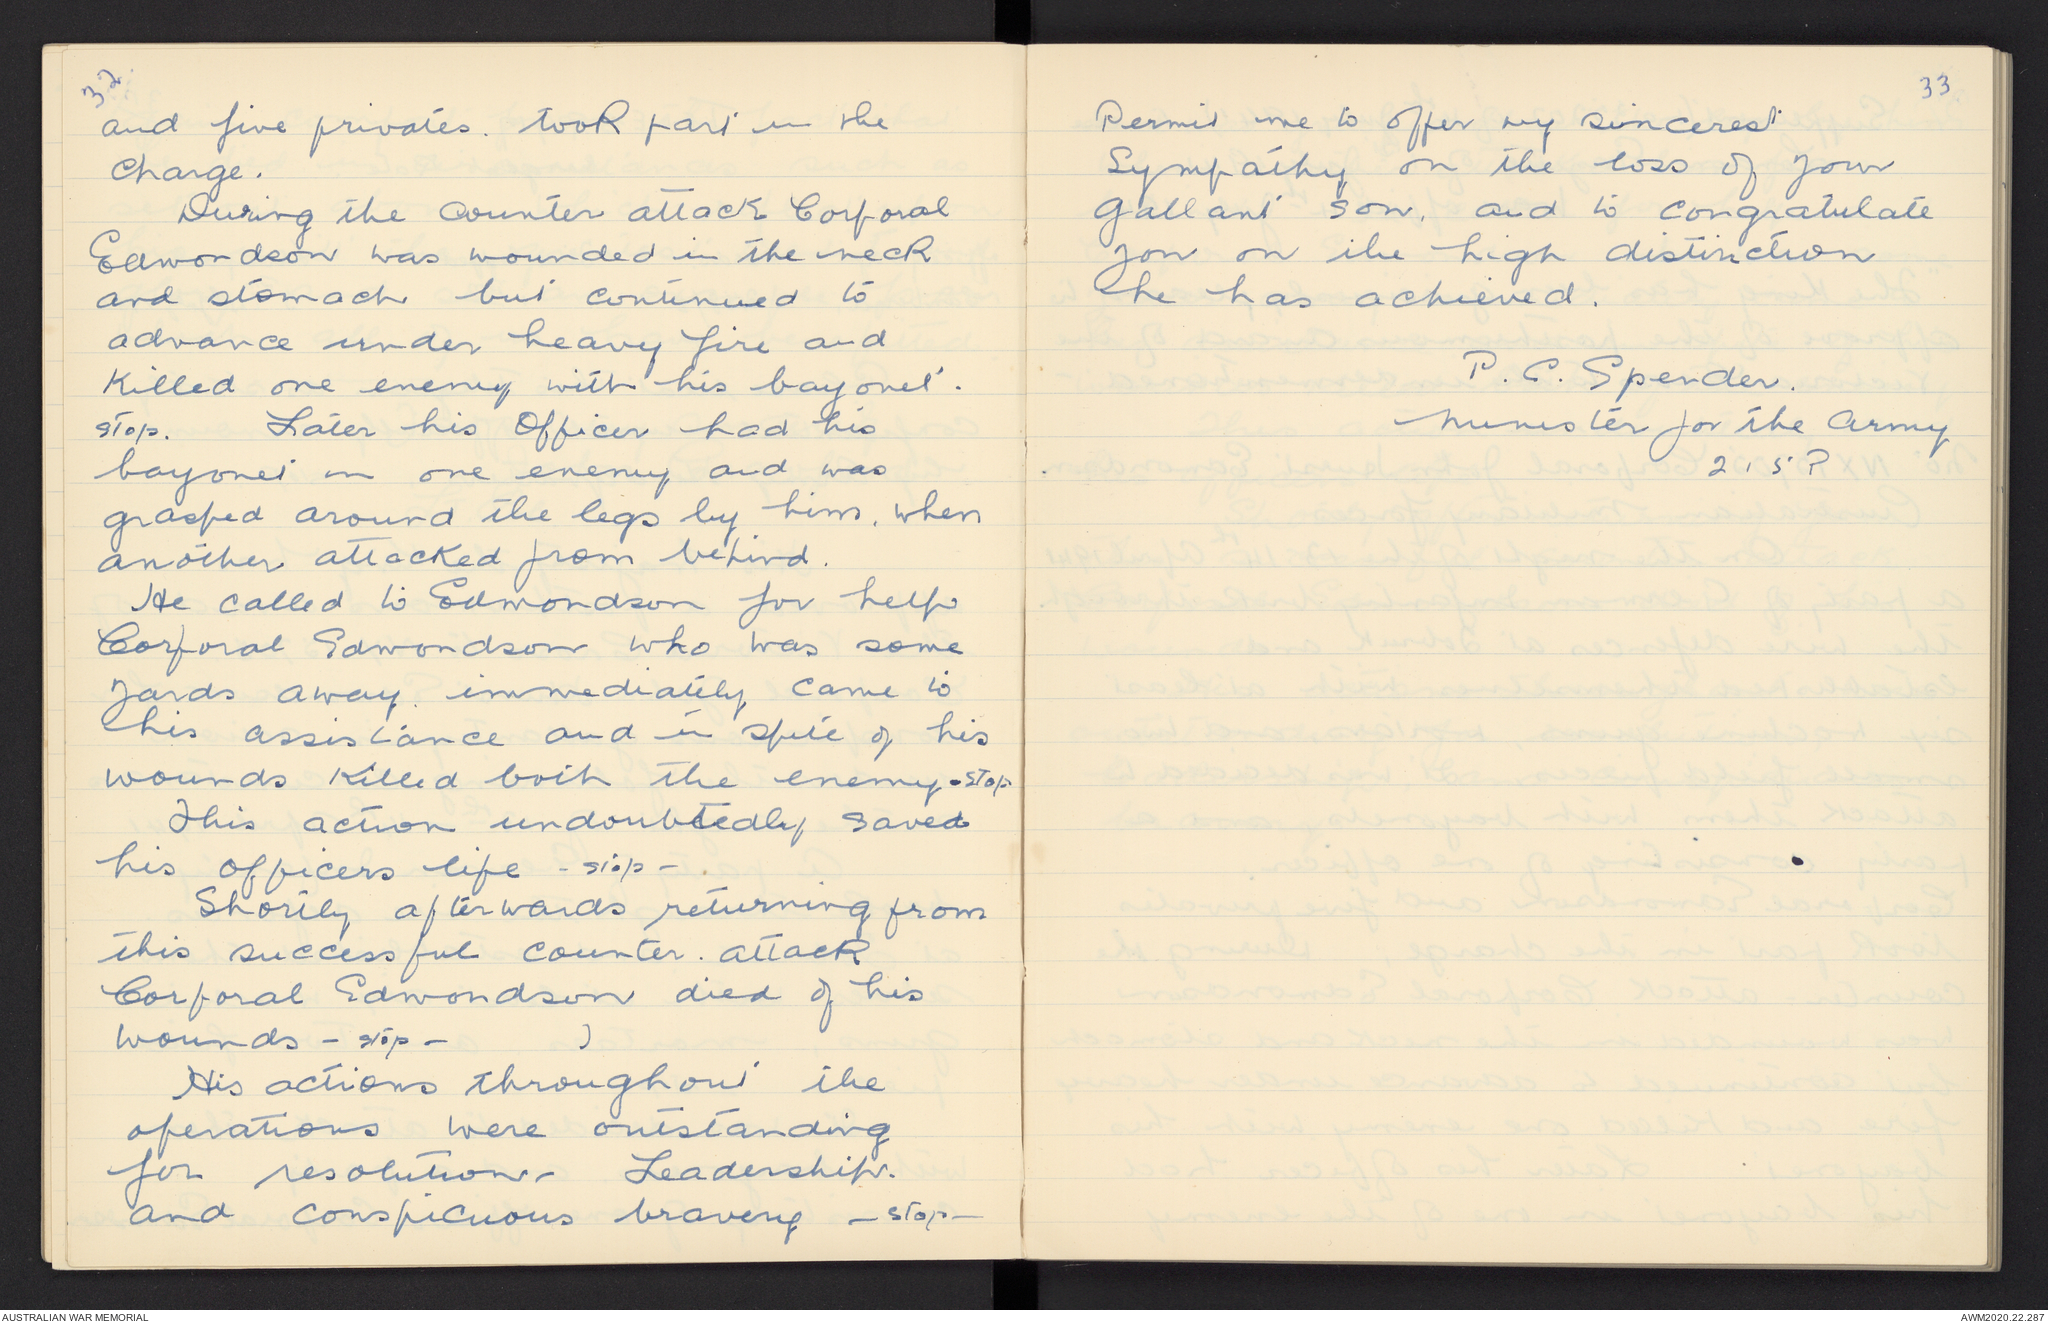 32
and five privates. took part in the
charge.
During the counter attack Corporal
Edmondson was wounded in the neck
and stomach but continued to
advance under heavy fire and
killed one enemy with his bayonet.
stop. Later his Officer had his
bayonet in one enemy and was
grasped around the legs by him, when
another attacked from behind.
He called to Edmondson for help
Corporal Edmondson who was some
yards away immediately came to
his assistance and in spite of his
wounds killed both the enemy - stop
This action undoubtedly saved
his officers life - stop -
Shortly afterwards returning from
this successful counter. attack
Corporal Edmondson died of his
wounds - stop -
His actions throughout the
operations were outstanding
for resolution - Leadership.
and conspicuous bravery - stop -
33
Permit me to offer my sincerest
Sympathy on the loss of your
Gallant son, and to congratulate
you on the high distinction
he has achieved.
P. C. Spender.
Minister for the Army
2.15 P
AUSTRALIAN WAR MEMORIAL
AWM2020.22.287